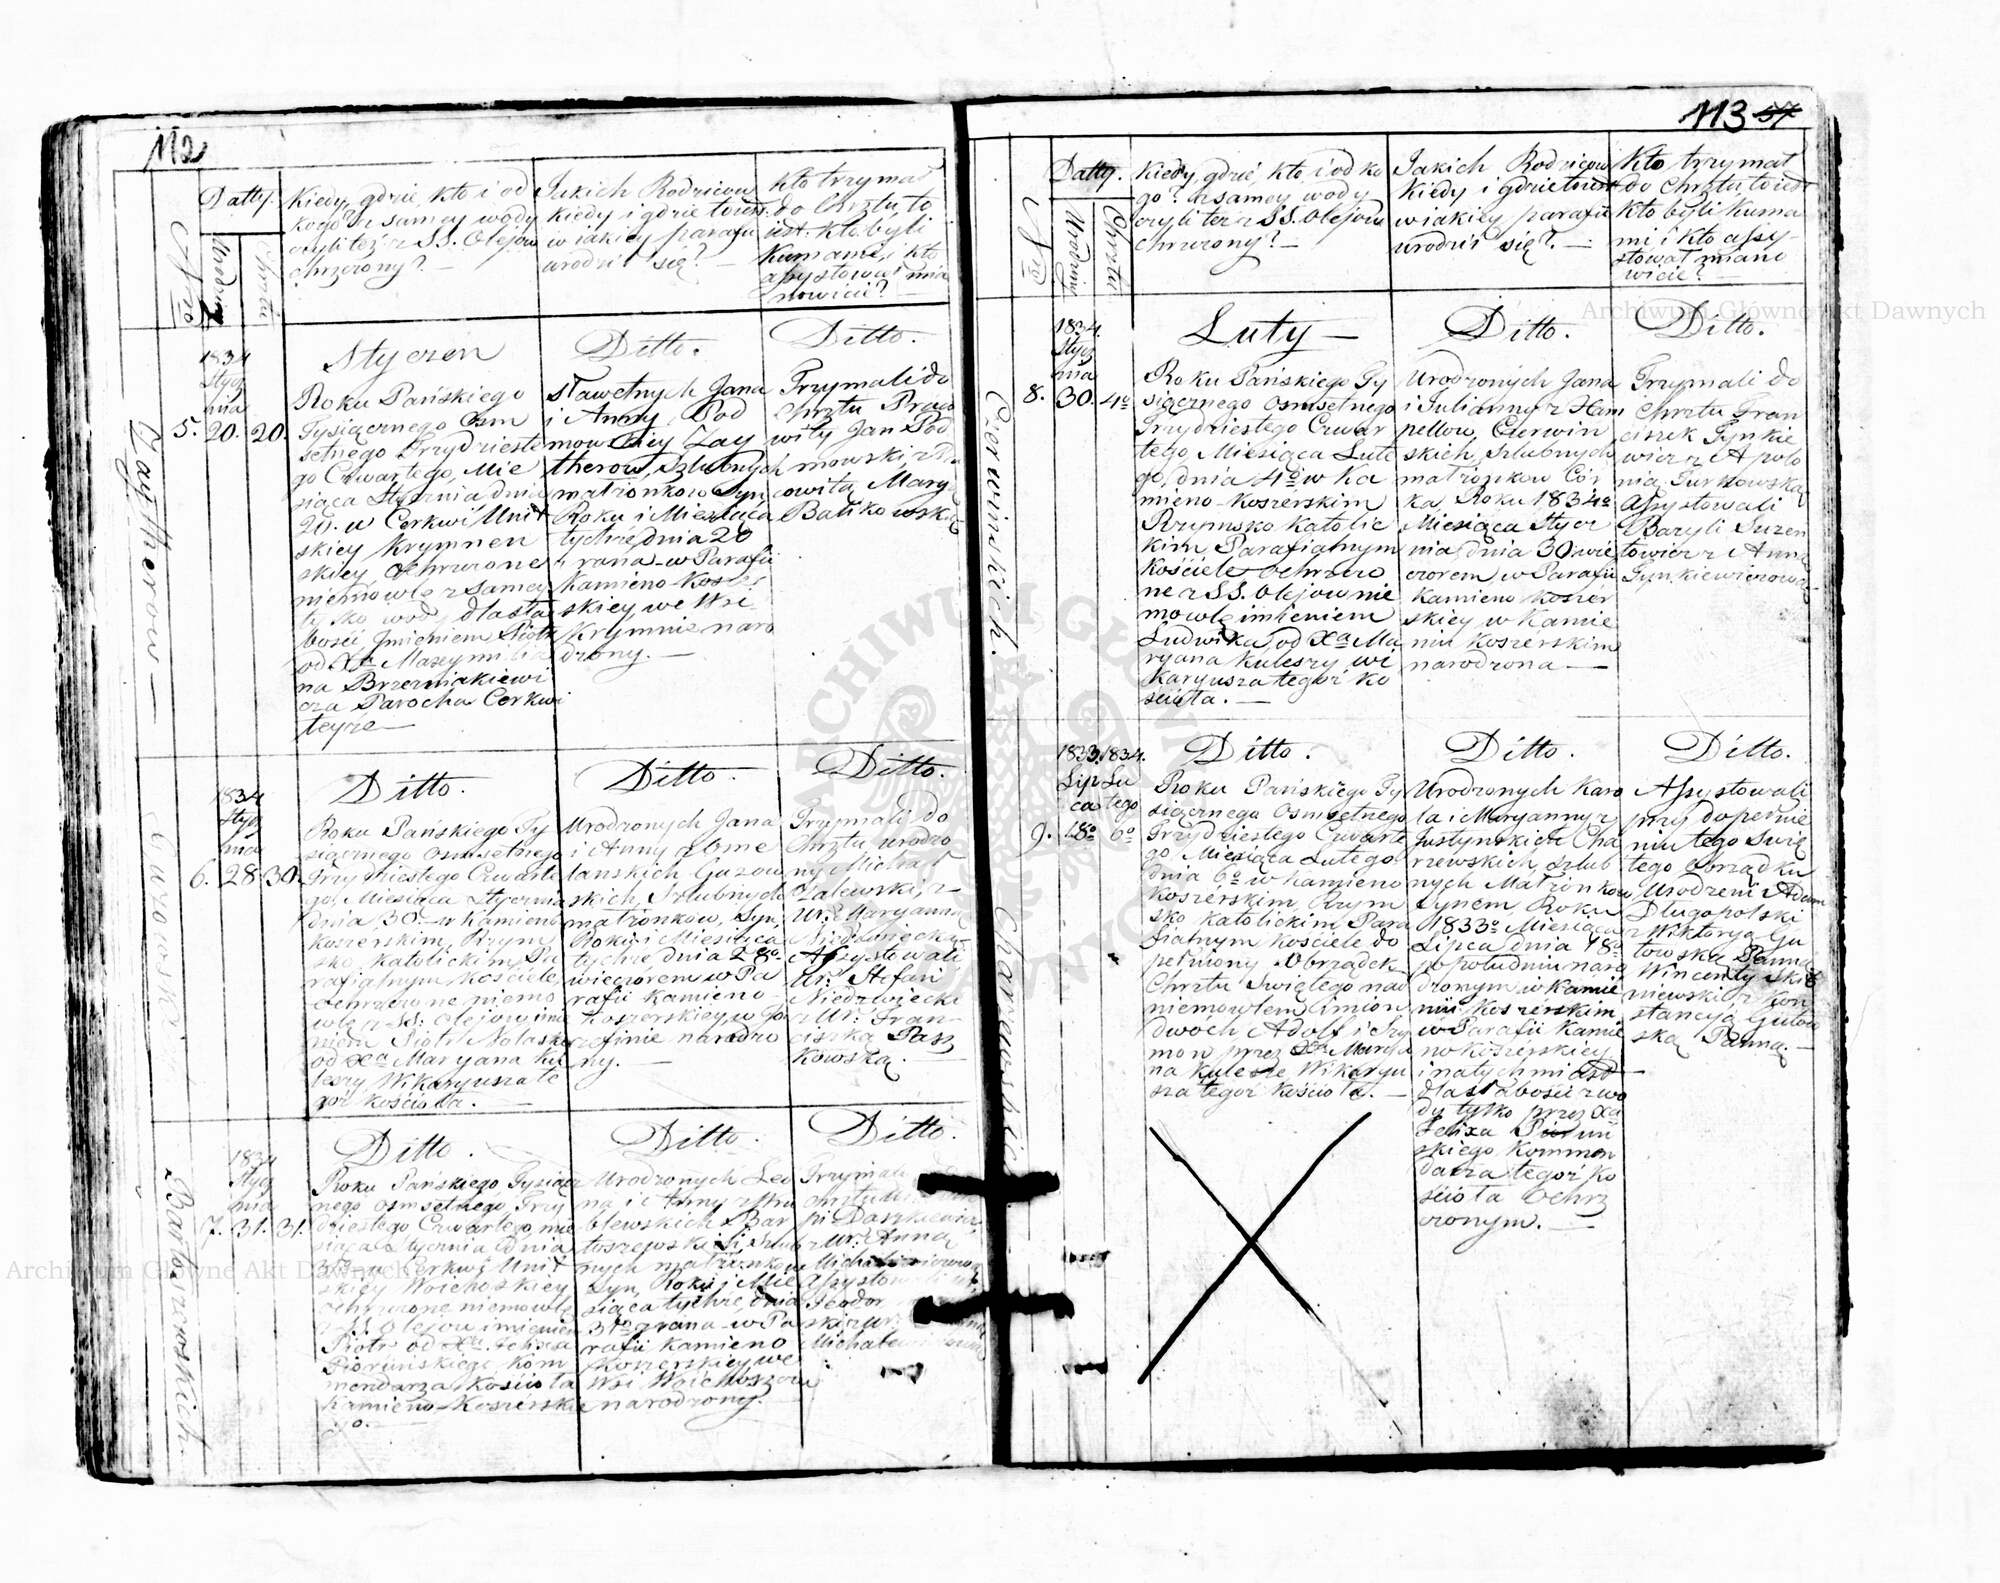 112
Datty.
Nro
Urodzin
Chrztu
Kiedy, gdzie, kto i od
kogo? z samey wody
czyli też z SS. Olejow
chrzczony? —
Jakich Rodziców
kiedy i gdzie to iest:
w iakiey parafii
urodził się? —
Kto trzymał
do Chrztu to
iest: kto byli
Kumami, i kto
assystował mia
nowicie? —
Zaytherow —
5.
1834
Stycz
nia
20.
20.
Styczen
Roku Pańskiego
Tysiącznego Osm
setnego Trzydzieste
go Czwartego, Mie
siąca Stycznia dnia
20. w Cerkwi Unit
skiey Krymnen
skiey, Ochrzczone
niemowle z samey
tylko wody dla sła
bości Jmieniem Piotr
od Xa Maxymilia
na Brzezniakiewi
cza Parocha Cerkwi
teyże —
Ditto.
Sławetnych Jana
i Anny Pod
mowskiey Zay
therow, Szlubnych
małżonkow Syn
Roku i Miesiąca
tychże dnia 20
z rana w Parafii
Kamieno-Koszer
skiey we Wsi
Krymnie naro
dzony. —
Ditto.
Trzymali do
Chrztu Praco
wity Jan Pod
mowski, z Pra
cowitą Mary
Batikowską
6.
1834
Stycz
nia
28.
30.
Ditto.
Roku Pańskiego Ty
siącznego Osmsetnego
Trzydziestego Czwarte
go, Miesiąca Stycznia
dnia 30. w Kamieno
Koszerskim, Rzym
sko Katolickim Pa
rafialnym Kościele,
Ochrzczone niemo
wle z SS: Olejow imie
niem Piotr Nolasko
od Xa Maryana Ku
leszy, Wikaryusza te
goż Kościoła. —
Ditto.
Urodzonych Jana
i Anny z Ome
lanskich Gazow
skich, Szlubnych
małżonkow, Syn,
Roku i Miesiąca
tychże dnia 28o
wieczorem w Pa
rafii Kamieno-
Koszerskiey, w
narodzo
ny. —
Ditto.
Trzymali do
Chrztu urodzo
ny Michał
Zalewski, z
Ur: Maryanną
Niedzwiecką
Assystowali
Ur: Stefan
Niedzwiecki
z Ur: Fran-
ciszką Pasz
kowską. —
Bartoszewskich.
7.
1834
Stycz
nia
31.
31.
Ditto.
Roku Pańskiego Tysiącz
nego Osmsetnego, Trzy
dziestego Czwartego, mie
siąca Stycznia dnia
31o w Cerkwi Unit
skiey Woichoskiey
Ochrzczone niemowle
z SS Olejow imieniem
Piotr od Xa Felixa
Piorunskiego, Kom
mendarza Kościoła
Kamieno-Koszerskie
go. —
Ditto.
Urodzonych Leo
na i Anny z Wru
blewskich Bar
toszewskich, Szlub
nych małżonkow
Syn, Roku i Mie
siąca tychże, dnia
31o z rana w Pa
rafii Kamieno
Koszerskiey we
Wsi Woichoszowie
narodzony. —
Ditto.
Trzymali
chrztu
Daszkiewicz
z Ur: Anną
Assystowali
Teodor
113 57
Datty.
Nro
Urodziny
Chrztu
Kiedy, gdzie, kto i od ko
go? z samey wody
czyli też z SS. Olejow
chrzczony? —
Jakich Rodziców
Kiedy i gdzie to iest
w iakiey parafii
urodził się? —
Kto trzymał
do Chrztu, to iest
Kto byli Kuma
mi i kto assy-
stował miano
wicie? —
Czerwinskich.
8.
1834.
Stycz
nia
30.
4o
Luty —
Roku Pańskiego Ty
siącznego Osmsetnego
Trzydziestego Czwar
tego, Miesiąca Lute
go, dnia 4o w Ka
mieno-Koszerskim
Rzymsko Katolic
kim, Parafialnym
Kościele Ochrzczo
ne z SS. Olejow nie
mowle imieniem
Ludwika, od Xa Ma
ryana Kuleszy Wi
karyusza tegoż Ko
ścioła. —
Ditto.
Urodzonych Jana
i Julianny z Ham
pellow, Czerwin
skich, Szlubnych
małżonkow Cór
ka, Roku 1834o
Miesiąca Stycz
nia, dnia 30. wie
czorem, w Parafii
Kamieno Koszer
skiey w Kamie
niu Koszerskim
narodzona —
Ditto.
Trzymali do
Chrztu Fran
ciszek Tynkie
wicz z Apolo
nią Turkowską
Assystowali
Bazyli Juzen
towicz z Anną
Tynkiewiczową
9.
1833.
Lip
ca
18o
1834.
Lu
tego
6o
Ditto.
Roku Pańskiego Ty
siącznego Osmsetnego
Trzydziestego Czwarte
go, Miesiąca Lutego
dnia 6o w Kamieno
Koszerskim, Rzym
sko Katolickim Para
fialnym Kościele do
pełniony Obrządek
Chrztu Swiętego nad
niemowlęm imion
dwoch Adolf i Szy
mon przez Xa Marya
na Kulesze Wikaryu
sza tegoż Kościoła. —
Ditto.
Urodzonych Karo
la i Maryanny z
Justynskich Cha
rzewskich, szlub
nych Małżonkow
Synem, Roku
1833o Miesiąca
Lipca dnia 18o
po południu naro
dzonym w Kamie
niu Koszerskim
w Parafii Kamie
no Koszerskiey,
i natychmiast
dla słabości z wo
dy tylko przez Xa
Felixa Piorun
skiego Kommen
darza tegoż Ko
ścioła Ochrz
czonym. —
Ditto.
Assystowali
przy dopełnie
niu tego Swię
tego Obrządku
Urodzeni Adam
Długopolski
z Wiktoryą Gu
towską Panną
Wincenty Skib
niewski z Kon
stancyą Gutow
ską Panną. —
Archiwum Główne Akt Dawnych
Archiwum Główne Akt Dawnych
ARCHIWUM GŁÓWNE AKT DAWNYCH